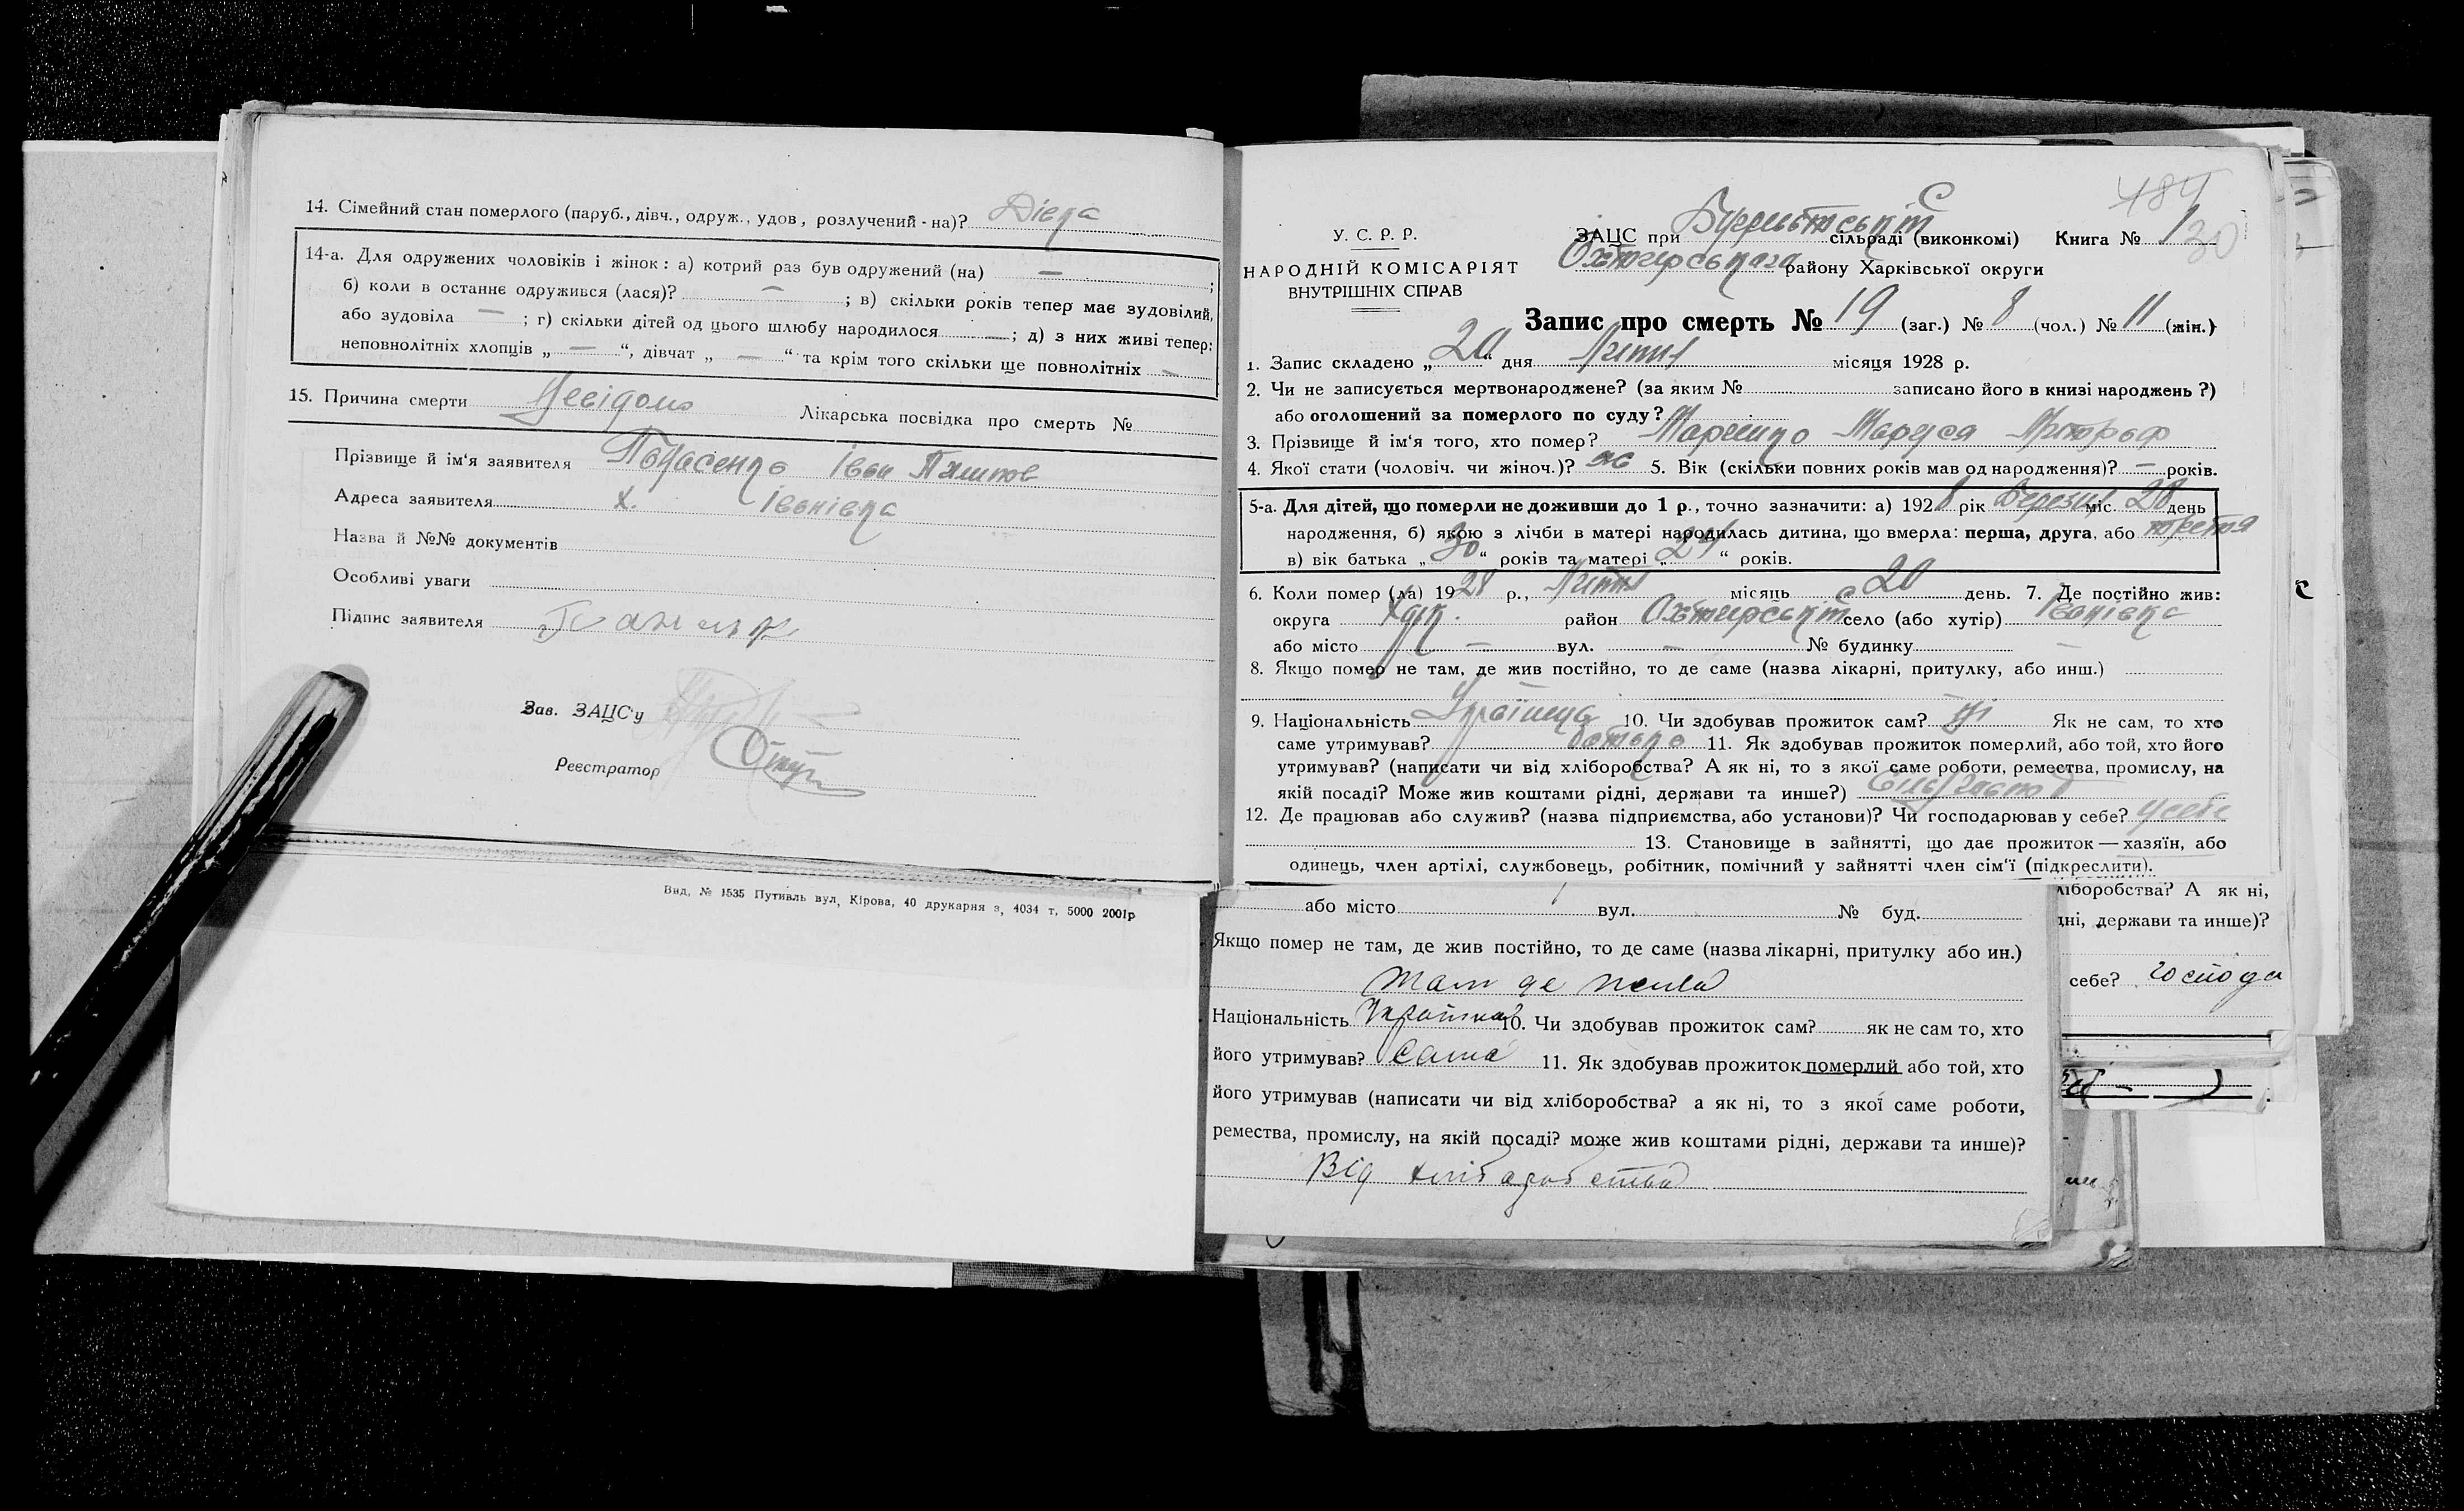 14. Сімейний стан померлого (паруб., дівч., одруж., удов, розлучений - на)? Дівка
14-а. Для одружених чоловіків і жінок: а) котрий раз був одружений (на) — ;
б) коли в останнє одружився (лася)? — ; в) скільки років тепер має зудовілий,
або зудовіла — ; г) скільки дітей од цього шлюбу народилося — ; д) з них живі тепер:
неповнолітніх хлопців „ — “, дівчат „ — “ та крім того скільки ще повнолітніх —
15. Причина смерти Невідомо Лікарська посвідка про смерть №
Прізвище й ім'я заявителя Іван
Адреса заявителя х. Іванівка
Назва й №№ документів
Особливі уваги
Підпис заявителя
Зав. ЗАЦС'у
Реєстратор
Вид, № 1535 Путивль вул, Кірова, 40 друкарня з, 4034 т, 5000 2001р
484
30
У. С. Р. Р.
НАРОДНІЙ КОМІСАРІЯТ
ВНУТРІШНІХ СПРАВ
ЗАЦС при сільраді (виконкомі) Книга № 1
Охтирського району Харківської округи
Запис про смерть № 19 (заг.) № 8 (чол.) № 11 (жін.)
1. Запис складено „20“ дня Липня місяця 1928 р.
2. Чи не записується мертвонароджене? (за яким № записано його в книзі народжень ?)
або оголошений за померлого по суду?
3. Прізвище й ім'я того, хто помер? Марченко Маруся
4. Якої стати (чоловіч. чи жіноч.)? ж 5. Вік (скільки повних років мав од народження)? — років.
5-а. Для дітей, що померли не доживши до 1 р., точно зазначити: а) 1928 рік Березня міс. 28 день
народження, б) якою з лічби в матері народилась дитина, що вмерла: перша, друга, або третя
в) вік батька „30“ років та матері „24“ років.
6. Коли помер (ла) 1928 р., Липня місяць 20 день. 7. Де постійно жив:
округа Харк. район Охтирський село (або хутір) Іванівка
або місто — вул. — № будинку —
8. Якщо помер не там, де жив постійно, то де саме (назва лікарні, притулку, або инш.)
9. Національність Українка 10. Чи здобував прожиток сам? ні Як не сам, то хто
саме утримував? батько 11. Як здобував прожиток померлий, або той, хто його
утримував? (написати чи від хліборобства? А як ні, то з якої саме роботи, ремества, промислу, на
якій посаді? Може жив коштами рідні, держави та инше?)
12. Де працював або служив? (назва підприємства, або установи)? Чи господарював у себе? у себе
13. Становище в зайнятті, що дає прожиток — хазяїн, або
одинець, член артілі, службовець, робітник, помічний у зайнятті член сім'ї (підкреслити).
або місто вул. № буд.
Якщо помер не там, де жив постійно, то де саме (назва лікарні, притулку або ин.)
там де жила
Національність Українка 10. Чи здобував прожиток сам? як не сам то, хто
його утримував? сама 11. Як здобував прожиток померлий або той, хто
його утримував (написати чи від хліборобства? а як ні, то з якої саме роботи,
ремества, промислу, на якій посаді? може жив коштами рідні, держави та инше)?
Від хліборобства
ліборобства? А як ні,
дні, держави та инше)?
себе? господа